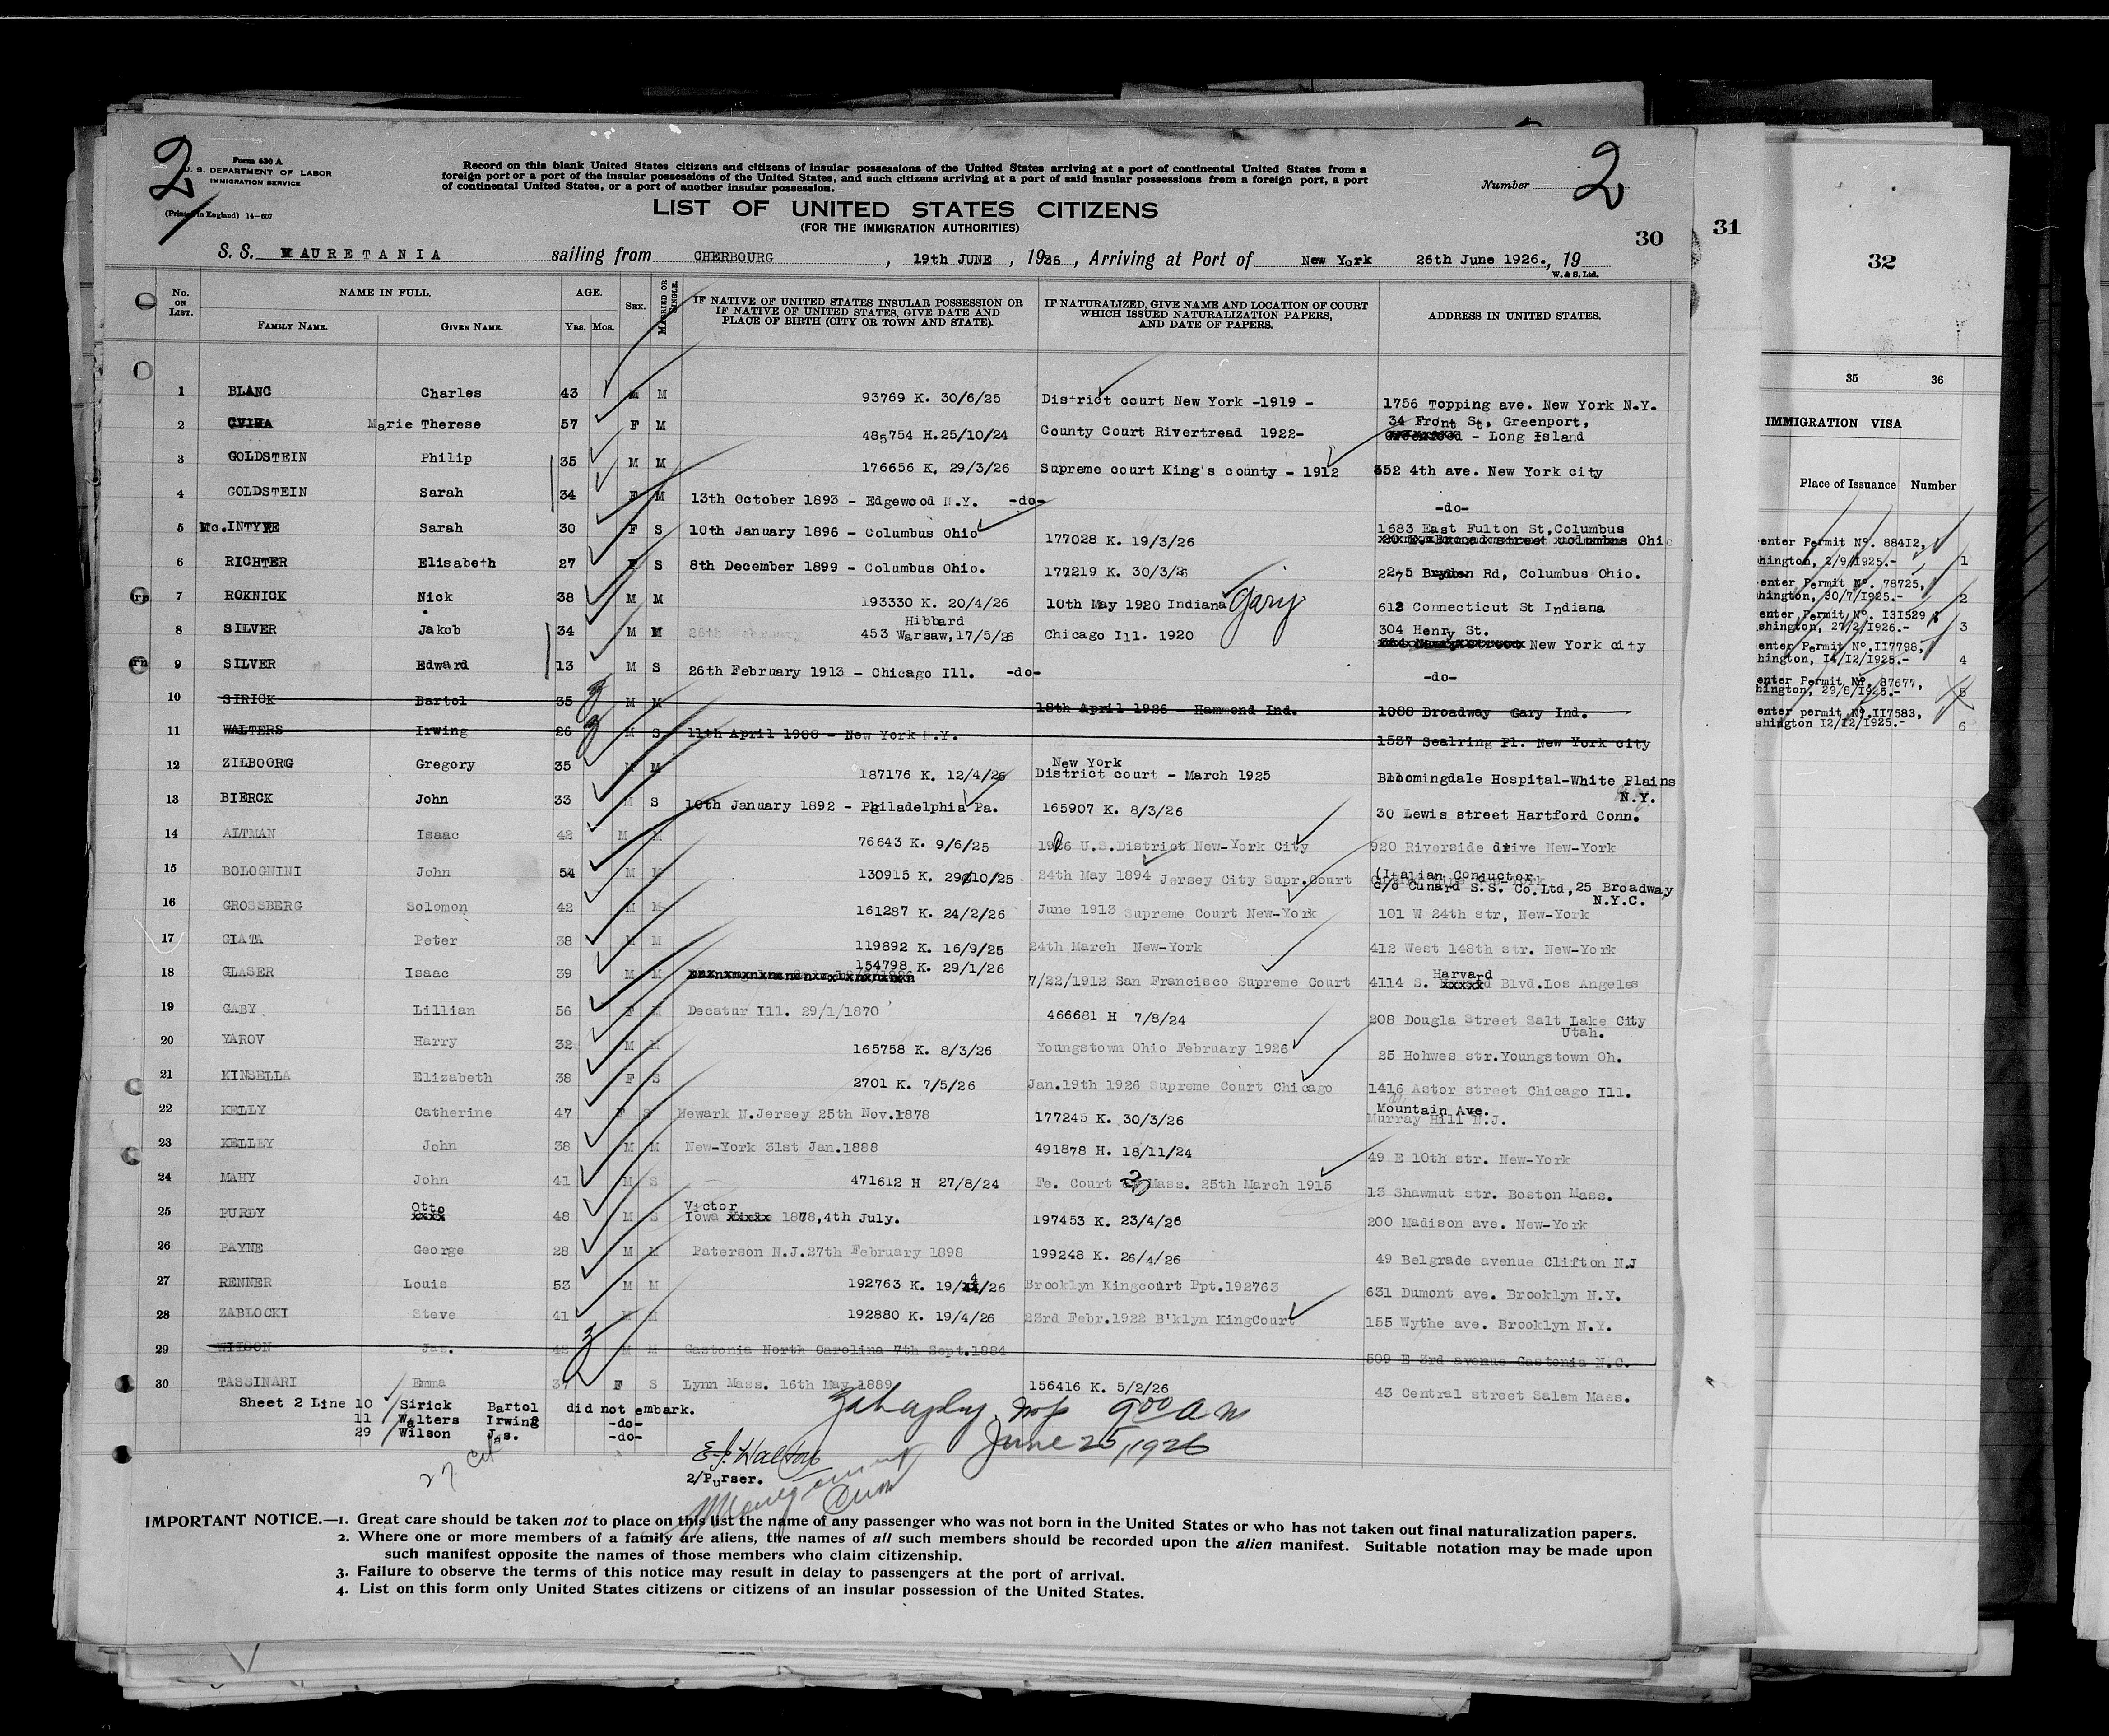 2 2
Form 630 A
U. S. DEPARTMENT OF LABOR
IMMIGRATION SERVICE
(Printed in England) 14—607
Record on this blank United States citizens and citizens of insular possessions of the United States arriving at a port of continental United States from a
foreign port or a port of the insular possessions of the United States, and such citizens arriving at a port of said insular possessions from a foreign port, a port
of continental United States, or a port of another insular possession.
Number
LIST OF UNITED STATES CITIZENS
(FOR THE IMMIGRATION AUTHORITIES)
30 31 32
S. S. MAURETANIA sailing from CHERBOURG, 19th JUNE, 1926, Arriving at Port of New York 26th June 1926., 19
W. & S. Ltd.
No. ON LIST. NAME IN FULL. FAMILY NAME. GIVEN NAME. AGE. YRS. MOS. SEX. MARRIED OR SINGLE. IF NATIVE OF UNITED STATES INSULAR POSSESSION OR IF NATIVE OF UNITED STATES, GIVE DATE AND PLACE OF BIRTH (CITY OR TOWN AND STATE). IF NATURALIZED, GIVE NAME AND LOCATION OF COURT WHICH ISSUED NATURALIZATION PAPERS, AND DATE OF PAPERS. ADDRESS IN UNITED STATES.
1 BLANC Charles 43 M M 93769 K. 30/6/25 District court New York -1919 - 1756 Topping ave. New York N.Y.
2 Marie Therese 57 F M 485754 H.25/10/24 County Court Rivertread 1922- 34 Front St, Greenport,
- Long Island
3 GOLDSTEIN Philip 35 M M 176656 K. 29/3/26 Supreme court King's county - 1912 352 4th ave. New York city
4 GOLDSTEIN Sarah 34 F M 13th October 1893 - Edgewood N.Y. -do- -do-
5 Mc.INTYRE Sarah 30 F S 10th January 1896 - Columbus Ohio 177028 K. 19/3/26 1683 East Fulton St,Columbus
Ohio
6 RICHTER Elisabeth 27 F S 8th December 1899 - Columbus Ohio. 177219 K. 30/3/26 Rd, Columbus Ohio.
7 ROKNICK Nick 38 M M 193330 K. 20/4/26 10th May 1920 Indiana Gary 612 Connecticut St Indiana
8 SILVER Jakob 34 M M Hibbard
453 Warsaw,17/5/26 Chicago Ill. 1920 304 Henry St.
New York city
9 SILVER Edward 13 M S 26th February 1913 - Chicago Ill. -do- -do-
10 SIRICK Bartol 35 M M 18th April 1926 - Hammond Ind. 1088 Broadway Gary Ind.
11 WALTERS Irwing 26 M S 11th April 1900 - New York N.Y. 1537 Sealring Pl. New York city
12 ZILBOORG Gregory 35 M M 187176 K. 12/4/26 New York
District court - March 1925 Bloomingdale Hospital-White Plains
N.Y.
13 BIERCK John 33 M S 10th January 1892 - Philadelphia Pa. 165907 K. 8/3/26 30 Lewis street Hartford Conn.
14 ALTMAN Isaac 42 M M 76643 K. 9/6/25 1906 U.S.District New-York City 920 Riverside drive New-York
15 BOLOGNINI John 54 M M 130915 K. 29/10/25 24th May 1894 Jersey City Supr.Court (Italian Conductor
c/o Cunard S.S. Co.Ltd,25 Broadway
N.Y.C.
16 GROSSBERG Solomon 42 M M 161287 K. 24/2/26 June 1913 Supreme Court New-York 101 W 24th str, New-York
17 GIATA Peter 38 M M 119892 K. 16/9/25 24th March New-York 412 West 148th str. New-York
18 GLASER Isaac 39 M M 154798 K. 29/1/26 7/22/1912 San Francisco Supreme Court 4114 S. Harvard Blvd.Los Angeles
19 GABY Lillian 56 F M Decatur Ill. 29/1/1870 466681 H 7/8/24 208 Dougla Street Salt Lake City
Utah.
20 YAROV Harry 32 M M 165758 K. 8/3/26 Youngstown Ohio February 1926 25 Hohwes str.Youngstown Oh.
21 KINSELLA Elizabeth 38 F S 2701 K. 7/5/26 Jan.19th 1926 Supreme Court Chicago 1416 Astor street Chicago Ill.
22 KELLY Catherine 47 F S Newark N.Jersey 25th Nov.1878 177245 K. 30/3/26 Mountain Ave.
Murray Hill N.J.
23 KELLEY John 38 M M New-York 31st Jan.1888 491878 H. 18/11/24 49 E 10th str. New-York
24 MAHY John 41 M S 471612 H 27/8/24 Fe. Court Mass. 25th March 1915 13 Shawmut str. Boston Mass.
25 PURDY Otto 48 M S Victor
Iowa 1878,4th July. 197453 K. 23/4/26 200 Madison ave. New-York
26 PAYNE George 28 M M Paterson N.J.27th February 1898 199248 K. 26/4/26 49 Belgrade avenue Clifton N.J
27 RENNER Louis 53 M M 192763 K. 19/4/26 Brooklyn Kingcourt Ppt.192763 631 Dumont ave. Brooklyn N.Y.
28 ZABLOCKI Steve 41 M M 192880 K. 19/4/26 23rd Febr.1922 B'klyn KingCourt 155 Wythe ave. Brooklyn N.Y.
29 WILSON Jas. 42 M M Gastonia North Carolina 7th Sept.1884 509 E 3rd avenue Gastonia N.C.
30 TASSINARI Emma 37 F S Lynn Mass. 16th May 1889 156416 K. 5/2/26 43 Central street Salem Mass.
Sheet 2 Line 10 Sirick Bartol did not embark.
11 Walters Irwing -do-
29 Wilson Jas. -do-
900 AM
June 25, 1926
27 Cit
E.J. Walton
2/Purser.
IMPORTANT NOTICE.—1. Great care should be taken not to place on this list the name of any passenger who was not born in the United States or who has not taken out final naturalization papers.
2. Where one or more members of a family are aliens, the names of all such members should be recorded upon the alien manifest. Suitable notation may be made upon
such manifest opposite the names of those members who claim citizenship.
3. Failure to observe the terms of this notice may result in delay to passengers at the port of arrival.
4. List on this form only United States citizens or citizens of an insular possession of the United States.
35 36
IMMIGRATION VISA
Place of Issuance Number
enter Permit No. 88412,
hington, 2/9/1925.- 1
enter Permit No. 78725,
hington, 30/7/1925.- 2
enter Permit No. I31529
shington, 27/2/1926.- 3
enter Permit No.II7798,
hington, 14/12/1925.- 4
enter Permit No. 87677,
hington, 29/8/1925.- 5
enter permit No.II7583,
shington 12/12/1925.- 6